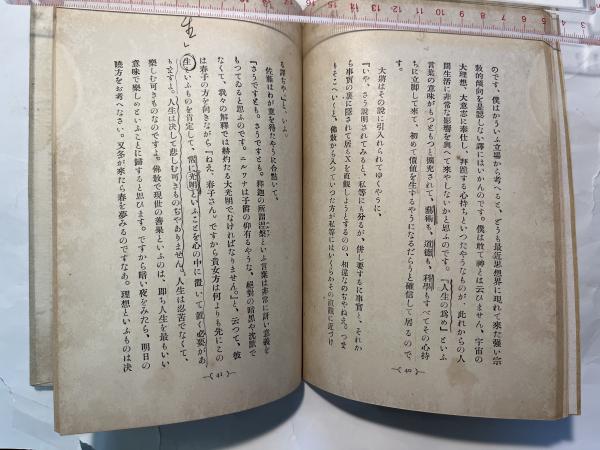 のです。僕はかういふ立場から考へると、どうも最近思想界に現れて來た强い宗
敎的傾向を是認しない譯にはいかんのです。僕は敢て神とは云ひません、宇宙の
大理想、大意志に奉仕し、拜跪する心持ちといつたやうなものが、此れからの人
間生活に非常な影響を與へて來やしないかと思ふのです。「人生の爲め」といふ
言葉の意味がもつともつと擴充されて、藝術も、道德も、科學もすべてその心持
ちに立脚して來て、初めて價値を生するやうになるだらうと確信して居るので
す。
大澤はその說に引入れられてゆくやうに、
『いや、さう說明されてみると、私等にも分るが、併し要するに事實と、それか
ら事實の裏に隱されて居るXを直觀しようとするのの、相違なのぢやねえ。つま
もそこへいくと、佛敎から入つていつた方が私等にはいくらかその直觀に近づけ
40
る譯ぢや』と、いふ。
佐藤はわが意を得たやうに合點いて、
『さうですとも。さうですとも。釋迦の所謂涅槃といふ言葉は非常に深い意義を
もつてゐると思ふのです。ニルワナは子爵の仰有るやうな、絕對の暗黑や沈默で
なくて、我々の解釋では赫灼たる大光明でなければなりません。』と、云つて、彼
は春子の方を向きながら『ねえ、春子さん、ですから貴女方は何よりも先にこの
生といふものを肯定して、闇に光明といふことを心の中に置いて置く必要があ
りますよ。人生は決して悲しむ可きものぢやありません。人生は忍苦でなくて、
樂しむ可きものなのです。佛敎で現世の善果といふのは、卽ち人生を最もいい
意味で樂しめといふことに歸すると思ひます。ですから暗い夜をみたら、明日の
曉方をお考へなさい。又冬が來たら春を夢みるのですなあ。理想といふものは決
41
生